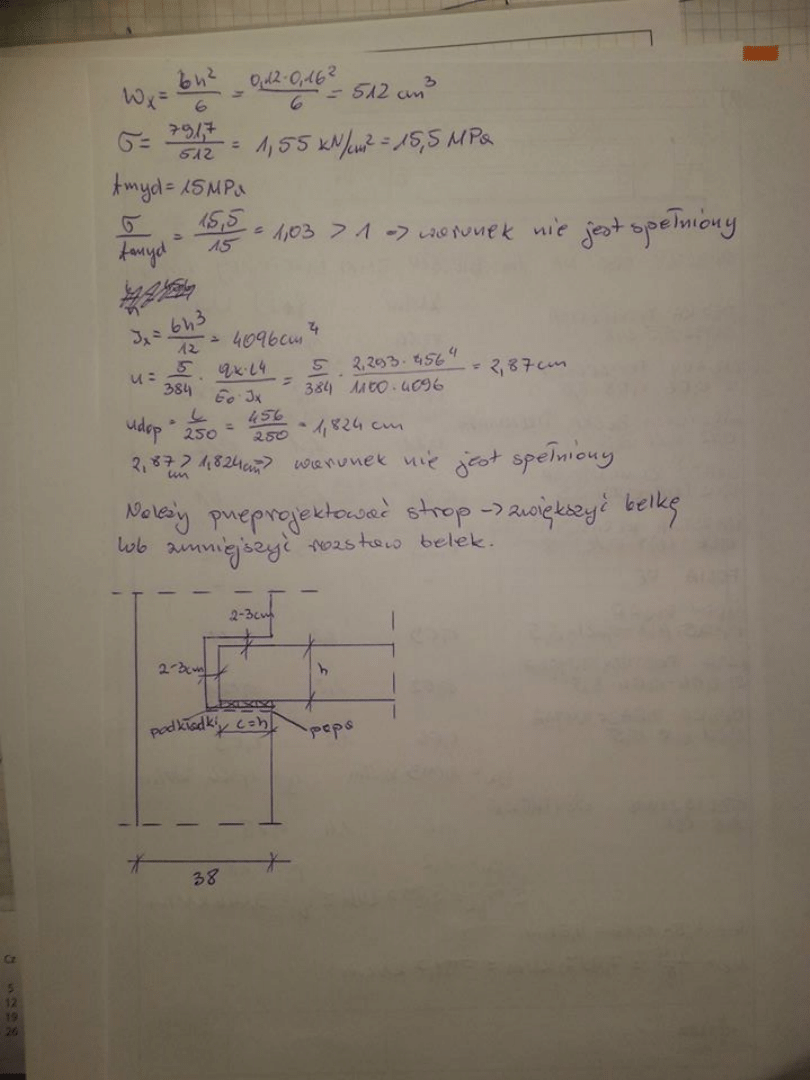 Wx = bh²/6 = 0,12·0,16²/6 = 512 cm³
σ = 791,7/512 = 1,55 kN/cm² = 15,5 MPa
fmyd = 15 MPa
σ/fmyd = 15,5/15 = 1,03 > 1 => warunek nie jest spełniony
Jx = bh³/12 = 4096 cm⁴
u = 5/384 · qk·L4/E0·Jx = 5/384 · 2,293·456⁴/1100·4096 = 2,87 cm
udop = L/250 = 456/250 = 1,824 cm
2,87 cm > 1,824 cm => warunek nie jest spełniony
Należy przeprojektować strop -> zwiększyć belkę
lub zmniejszyć rozstaw belek.
2-3cm
2-3cm
h
podkładki
c=h
papa
38
Cz
5
12
19
26